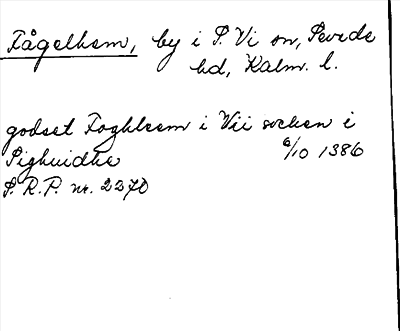 Fågelhem, by i S. Vi sn, Sevede
hd, Kalm. l.
godset Foghleem i Vii socken i
Sighuidhe 6/10 1386
S. R. P. nr. 2270